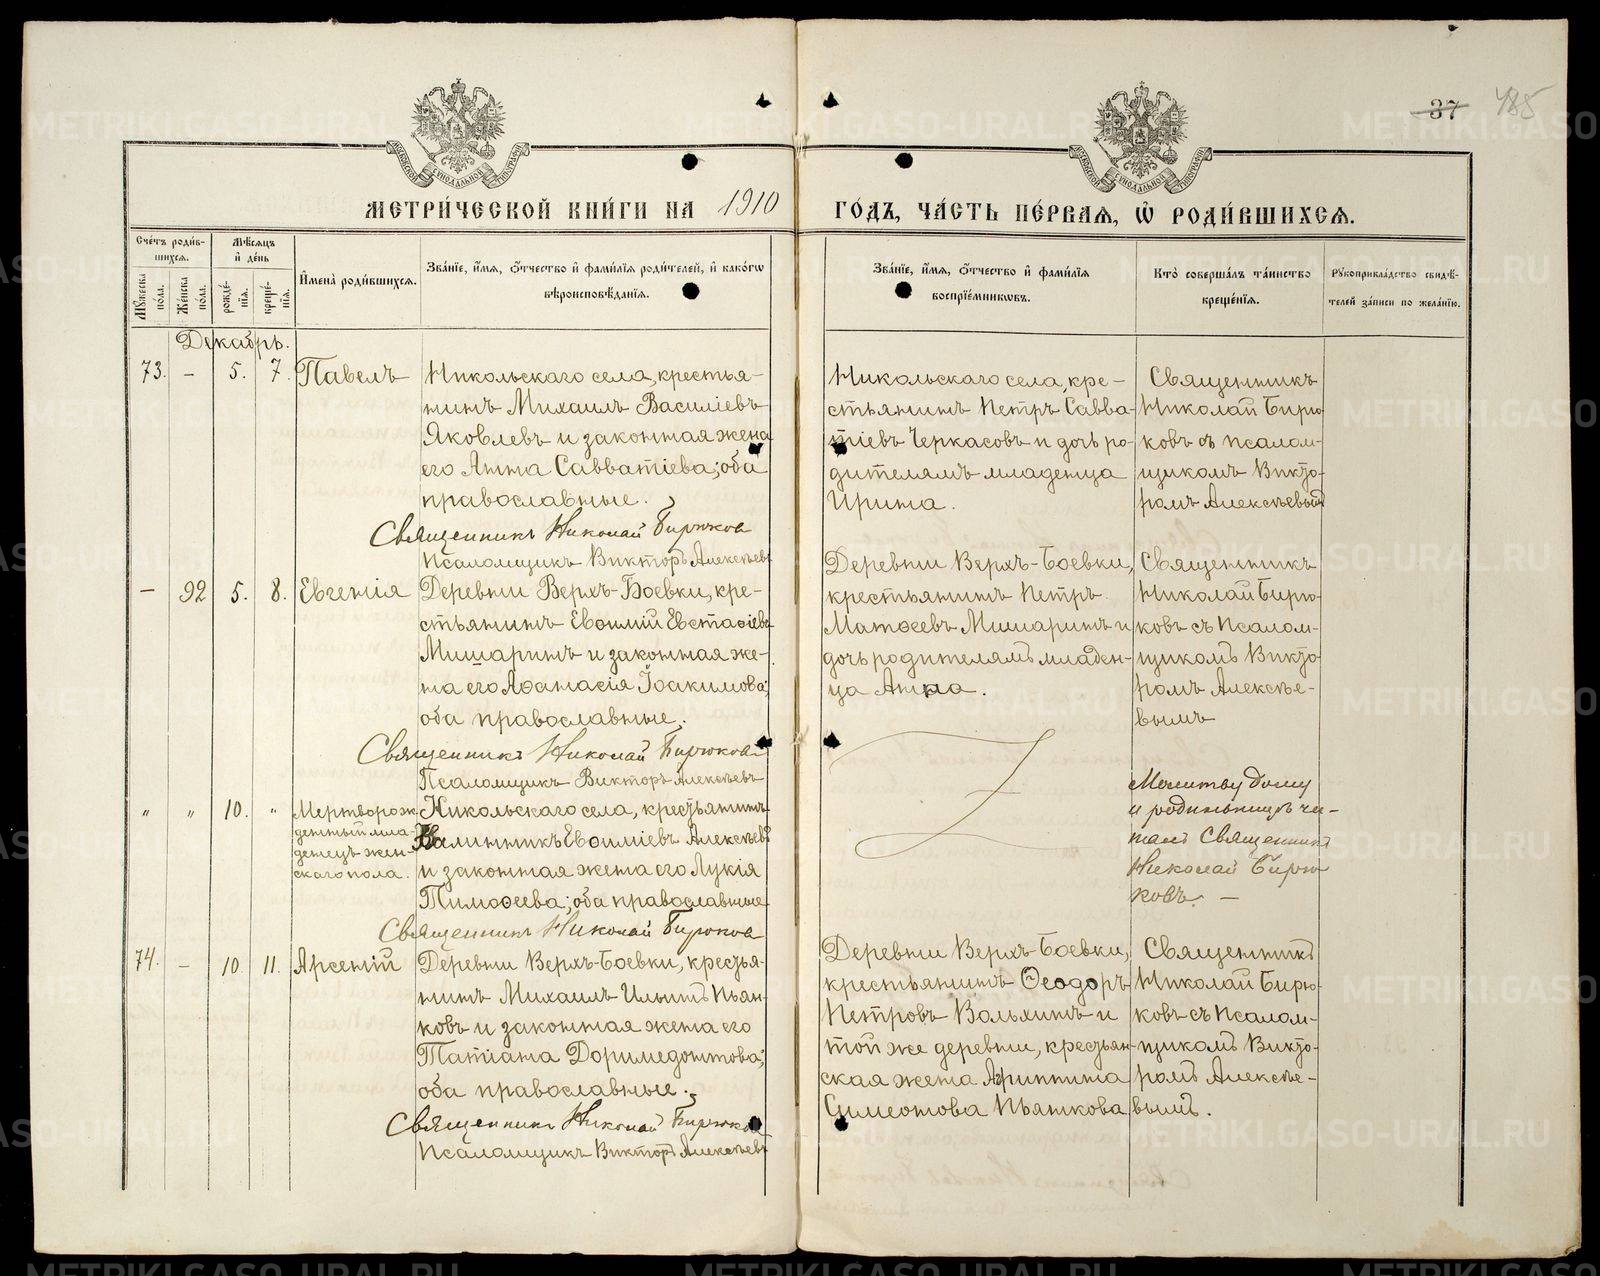 37 485
МЕТРИ́ЧЕСКОЙ КНИ́ГИ НА 1910 ГО́ДЪ, ЧА́СТЬ ПЕ́РВАѦ, Ѿ РОДИ́ВШИХСѦ.
Сче́тъ роди́в-
шихсѧ.
Мꙋ́жеска по́ла.
Же́нска по́ла.
Мѣ́сѧцъ
и҆ де́нь
рожде́-
нїѧ.
креще́-
нїѧ.
И҆мена̀ роди́вшихсѧ.
Зва́нїе, и҆́мѧ, ѻ҆́тчество и҆ фами́лїѧ роди́телей, и҆ како́гѡ
вѣроисповѣ́данїѧ.
Зва́нїе, и҆́мѧ, ѻ҆́тчество и҆ фами́лїѧ
воспрїе́мникѡвъ.
Кто̀ соверша́лъ та́инство
креще́нїѧ.
Рꙋкоприкла́дство свидѣ́-
телей за́писи по жела́нїю.
Декабрь.
73. – 5. 7. Павелъ
Никольскаго села, крестья-
нинъ Михаилъ Василіевъ
Яковлевъ и законная жена
его Анна Савватіева; оба
православные.
Священникъ Николай Бирюковъ
Псаломщикъ Викторъ Алексѣевъ
Никольскаго села, кре-
стьянинъ Петръ Савва-
тіевъ Черкасовъ и дочь ро-
дителямъ младенца
Ирина.
Священникъ
Николай Бирю-
ковъ съ псалом-
щикомъ Викто-
ромъ Алексѣевымъ
– 92 5. 8. Евгенія
Деревни Верхъ-Боевки, кре-
стьянинъ Евѳимій Евстаѳіевъ
Мишаринъ и законная же-
на его Аѳанасія Іоакимова;
оба православные.
Священникъ Николай Бирюковъ
Псаломщикъ Викторъ Алексѣевъ
Деревни Верхъ-Боевки,
крестьянинъ Петръ
Матѳеевъ Мишаринъ и
дочь родителямъ младен-
ца Анна.
Священникъ
Николай Бирю-
ковъ съ псалом-
щикомъ Викто-
ромъ Алексѣе-
вымъ
" " 10. " Мертворож-
денный мла-
денецъ жен-
скаго пола.
Никольскаго села, крестьянинъ
Калинникъ Евѳиміевъ Алексѣевъ
и законная жена его Лукія
Тимоѳеева; оба православные
Священникъ Николай Бирюковъ
Молитву дому
и родильницѣ чи-
талъ Священникъ
Николай Бирю-
ковъ. –
74. – 10. 11. Арсеній
Деревни Верхъ-Боевки, крестья-
нинъ Михаилъ Ильинъ Пьян-
ковъ и законная жена его
Татіана Доримедонтова;
оба православные.
Священникъ Николай Бирюковъ
Псаломщикъ Викторъ Алексѣевъ
Деревни Верхъ-Боевки,
крестьянинъ Ѳеодоръ
Петровъ Вольхинъ и
той же деревни, крестьян-
ская жена Агриппина
Симеонова Пьянкова
Священникъ
Николай Бирю-
ковъ съ псалом-
щикомъ Викто-
ромъ Алексѣе-
вымъ.
METRIKI.GASO-URAL.RU